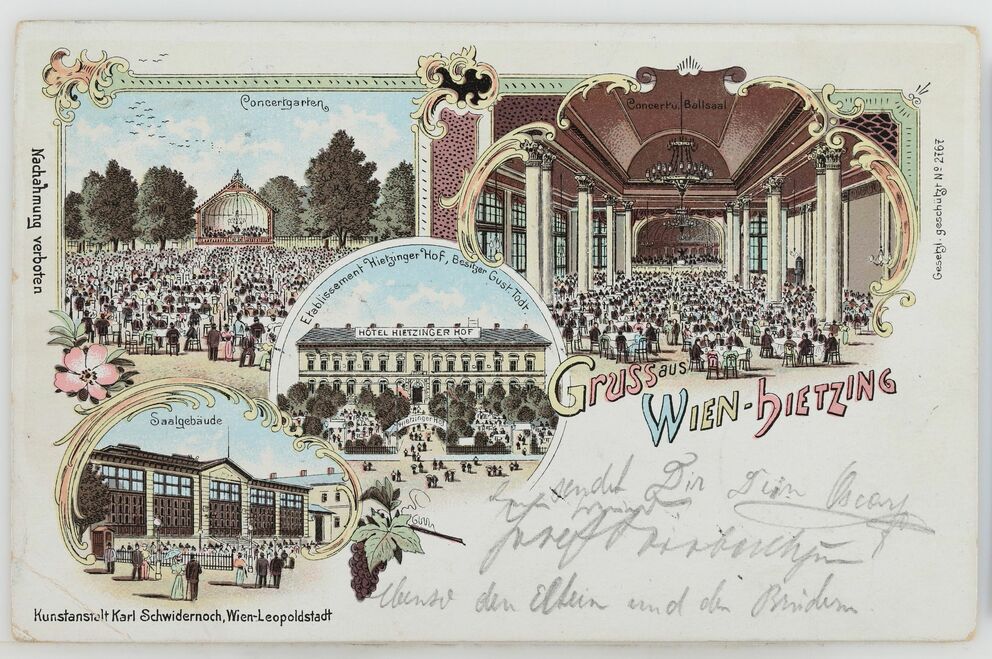 Concertgarten
Concert u. Ballsaal
Nachahmung verboten
Gesetzl. geschützt No 2767
Etablissement Hietzinger Hof, Besitzer Gust. Todt.
HÔTEL HIETZINGER HOF
Hietzinger Hof
Saalgebäude
GRUSS AUS
WIEN-HIETZING
sendet Dir Dein Oscar
Josef
Ebenso den Eltern und den Brüdern.
Kunstanstalt Karl Schwidernoch, Wien-Leopoldstadt